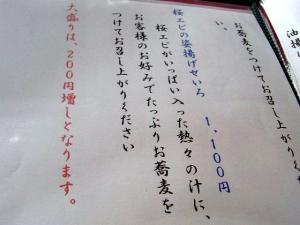 油揚
お召し上が
お蕎麦をつけてお召し上がりくださ
い。
桜エビの姿揚げせいろ 1,100円
桜エビがいっぱい入った熱々の汁に、
お客様のお好みでたっぷりお蕎麦を
つけてお召し上がりください
大盛りは、200円増しとなります。